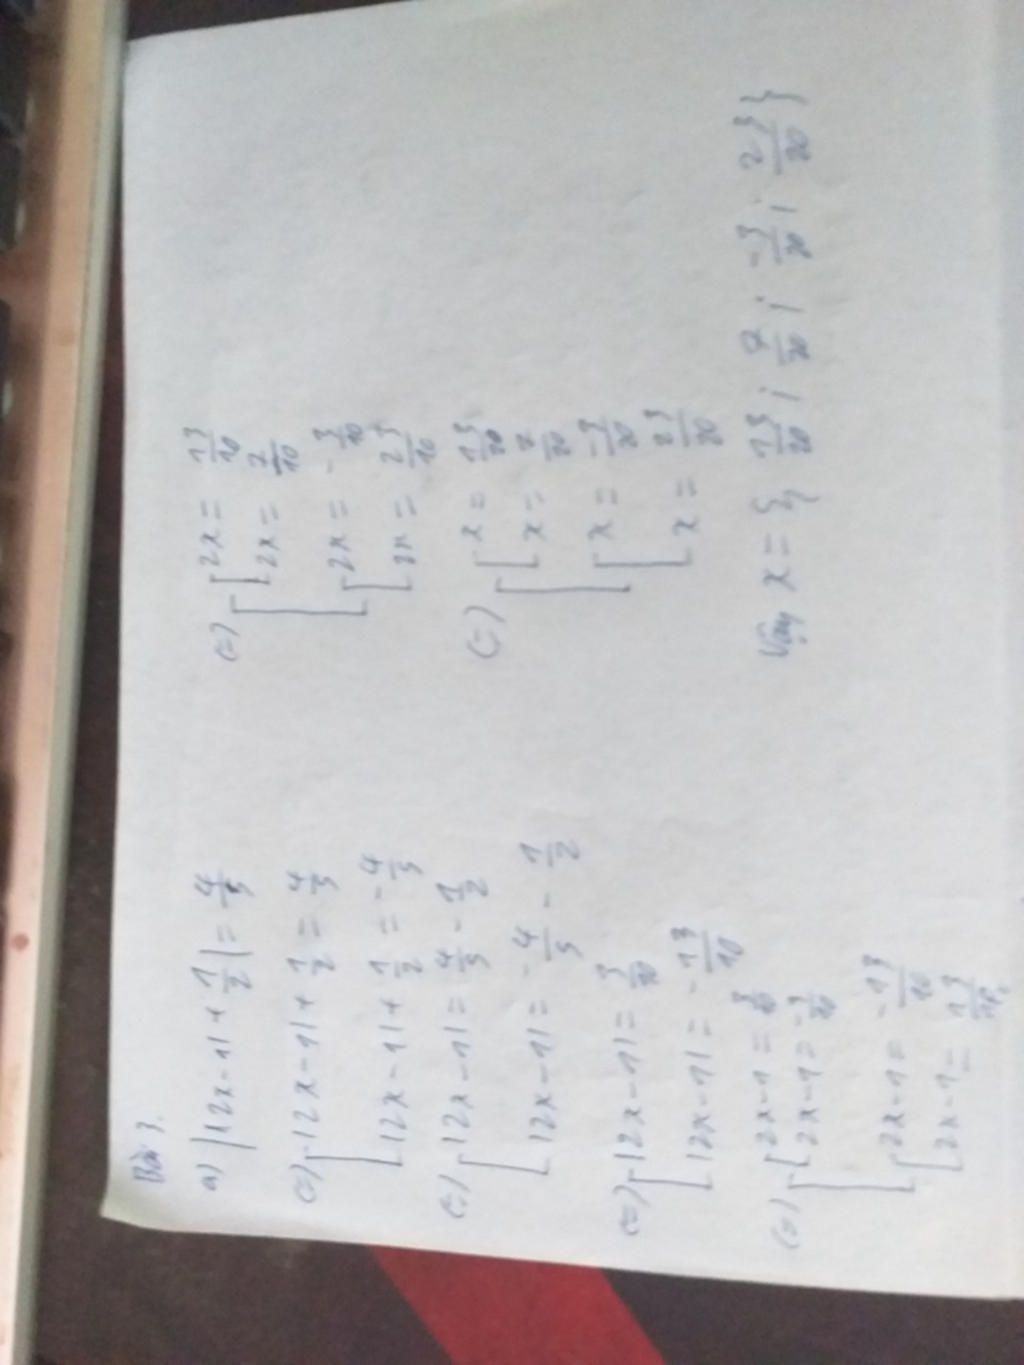 Bài 3.
a) ||2x-1|+\frac{1}{2}|=\frac{4}{5}
(=) [|2x-1|+\frac{1}{2}=\frac{4}{5}
[|2x-1|+\frac{1}{2}=-\frac{4}{5}
(=) [|2x-1|=\frac{4}{5}-\frac{1}{2}
[|2x-1|=-\frac{4}{5}-\frac{1}{2}
(=) [|2x-1|=\frac{3}{10}
[|2x-1|=-\frac{13}{10}
(=) [[2x-1=\frac{3}{10}
[2x-1=-\frac{3}{10}
[[2x-1=-\frac{13}{10}
[2x-1=\frac{13}{10}
(=) [[2x=\frac{13}{10}
[2x=\frac{7}{10}
[[2x=-\frac{3}{10}
[2x=\frac{23}{10}
(=) [[x=\frac{13}{20}
[x=\frac{7}{20}
[[x=-\frac{3}{20}
[x=\frac{23}{20}
Vậy x={\frac{13}{20};\frac{7}{20};-\frac{3}{20};\frac{23}{20}}